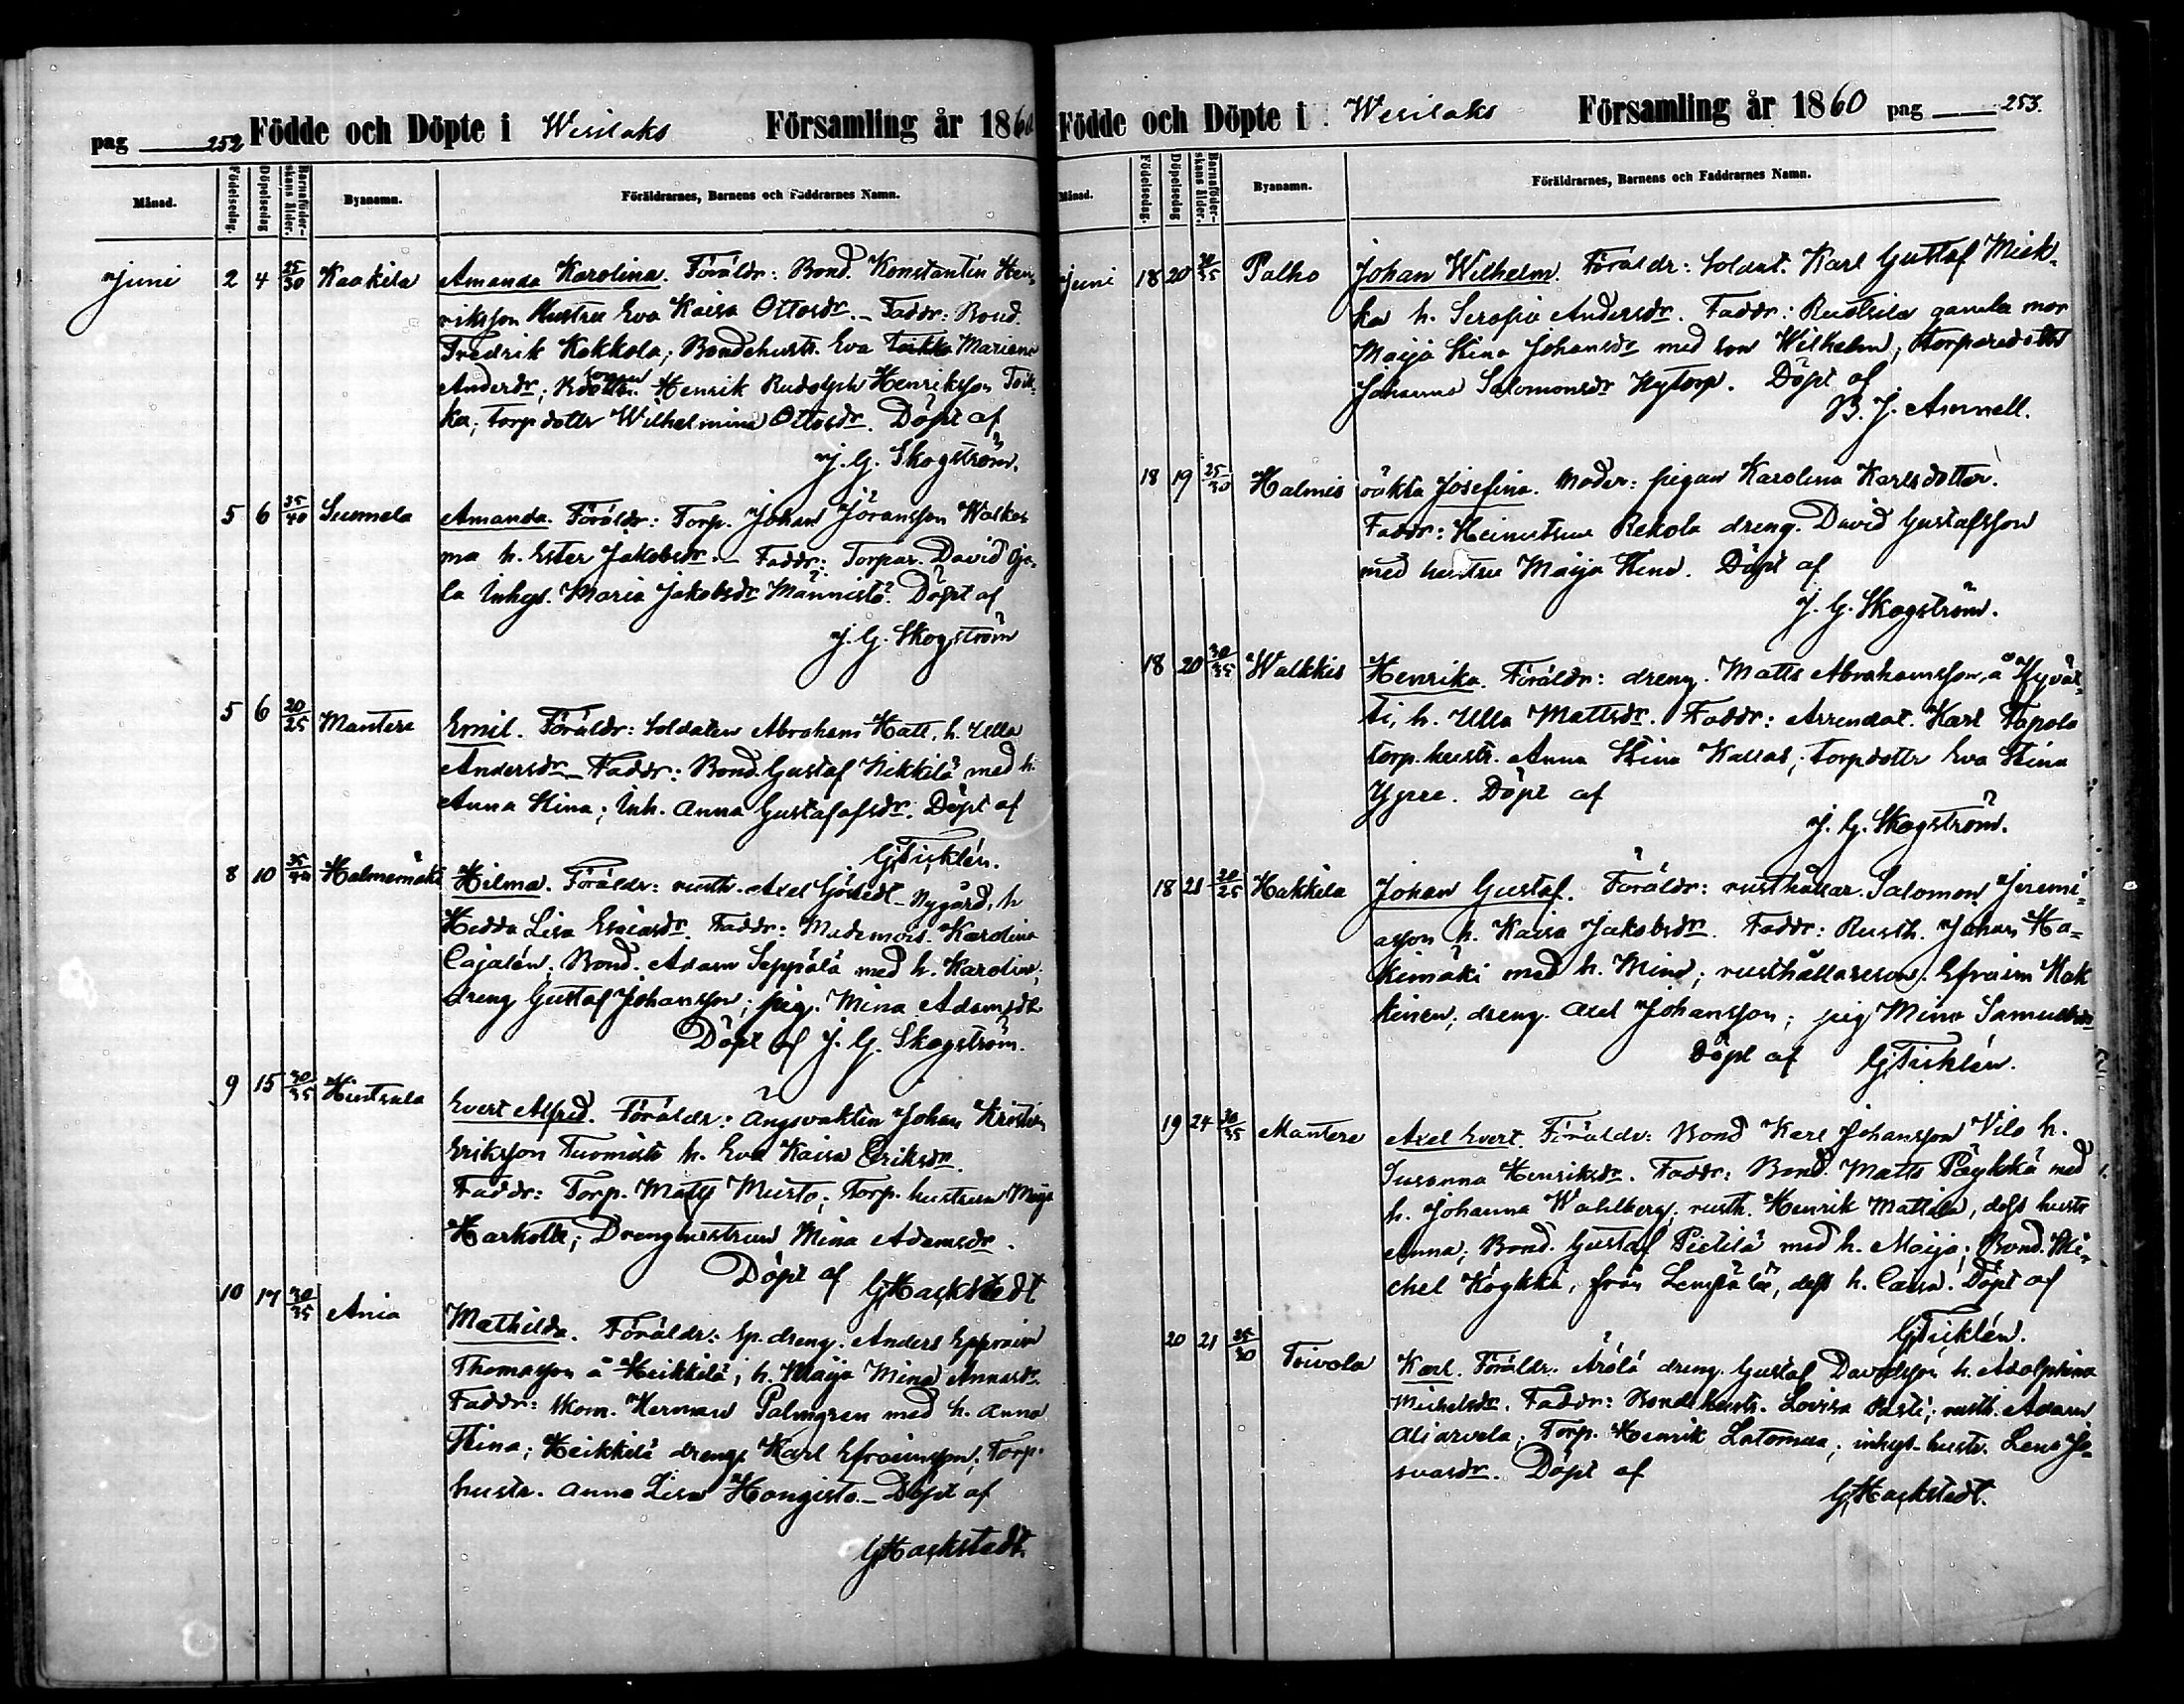 pag 252 Födde och Döpte i Wesilaks Församling år 1860
Månad. Födelsedag. Döpelsedag Barnaföderskans ålder. Byanamn. Föräldrarnes, Barnens och Faddrarnes Namn.
Juni 2 4 25/30 Kaakila Amanda Karolina. Föräldr: Bond. Konstantin Hen-
riksson Hustru Eva Kaisa Ottosdr. - Faddr: Bond.
Fredrik Kokkola; Bondehustr. Eva Toikka Mariana
Andersdr; sonen Henrik Rudolph Henriksson Toik-
ka; Torpdottr Wilhelmina Ottosdr. Döpt af
J. G. Skogström.
5 6 35/40 Suomela Amanda. Föräldr: Torp. Johan Jöransson Walkea
ma h. Ester Jakobsdr. - Faddr: Torpar. David Oja-
la Inhys. Maria Jakobsdr Männistö. Döpt af
J. G. Skogström
5 6 20/25 Mantere Emil. Föräldr: Soldaten Abraham Hatt, h. Ulla
Andersdr - Faddr: Bond. Gustaf Nikkilä med h.
Anna Stina; Inh. Anna Gustafsdr. Döpt af
G Ticklén.
8 10 35/40 Halmemäki Hilma. Föräldr: rusth. Axel - Nygård, h
Hedda Lisa Esaiasdr. Faddr: Mademois. Karolina
Cajalén; Bond. Adam Seppälä med h. Karolina;
dreng Gustaf Johansson; pig. Mina Adamsdr
Döpt af J. G. Skogström.
9 15 30/35 Hintsala Evert Alfred. Föräldr: Ängsvakten Johan Kristian
Eriksson Tuomisto h. Eva Kaisa Eriksdr.
Faddr: Torp. Matts Musto; Torp. hustrun Maija
Harkolk; Dränghustrun Mina Adamsdr.
Döpt af G Hackstedt
10 17 30/35 Ania Mathilda. Föräldr: Sp. dreng. Anders Ephraim
Thomasson å Heikkilä; h. Maija Mina Annasdr.
Faddr: Skom. Herman Palmgren med h. Anna
Stina; Heikkilä dreng. Karl Efraimsson; Torp-
hustr. Anna Lisa Hongisto. - Döpt af
G Hackstedt.
Födde och Döpte i Wesilaks Församling år 1860 pag 253.
Månad. Födelsedag. Döpelsedag Barnaföderskans ålder. Byanamn. Föräldrarnes, Barnens och Faddrarnes Namn.
Juni 18 20 30/35 Palho Johan Wilhelm. Föräldr: Soldat. Karl Gustaf Mick-
ka h. Serafia Andersdr. Faddr: gamla mor
Maija Stina Johansdr med son Wilhelm; Torparedottr
Johanna Salomonsdr Nytorp. Döpt af
B. J. Amnell.
18 19 25/30 Halmis oäkta Josefina. Moder: pigan Karolina Karlsdotter.
Faddr: Rekola dreng. David Gustafsson
med hustru Maija Stina. Döpt af
J. G. Skogström.
18 20 30/35 Walkkis Henrika. Föräldr: dreng. Matts Abrahamsson, å Hyvät-
ti, h. Ulla Mattsdr. Faddr: Arrendat. Karl Tapola
torp. hustr. Anna Stina Kallas; torpdottr Eva Stina
Yyree. Döpt af
J. G. Skogström.
18 21 20/25 Hakkila Johan Gustaf. Föräldr: rusthållar. Salomon Jeremi-
asson h. Kaisa Jakobsdr. Faddr: Rusth. Johan Ha-
kimäki med h. Mina; rusthållareson. Efraim Hak
kinen; dreng. Axel Johansson; pig Mina Samuelsdr
Döpt af G Ticklén.
19 24 30/35 Mantere Axel Evert. Föräldr: Bond Karl Johansson Vilo h.
Susanna Henriksdr. Faddr: Bond. Matts med
h. Johanna Wahlberg; rusth. Henrik Mattila, dess hustr
Anna; Bond. Gustaf Pietilä med h. Maija; Bond. Mi-
chel från Lempäälä, dess h. Caisa. Döpt af
G Ticklén.
20 21 25/30 Toivola Karl. Föräldr. Arölä dreng. Gustaf Davidsson, h. Adolphina
Michelsdr. Faddr: Bondehustr. Lovisa Pasti; rusth. Adam
Aliarvela; Torp. Henrik Latomaa; inhys-hustr. Lena Jo-
suasdr. Döpt af
G Hackstedt.